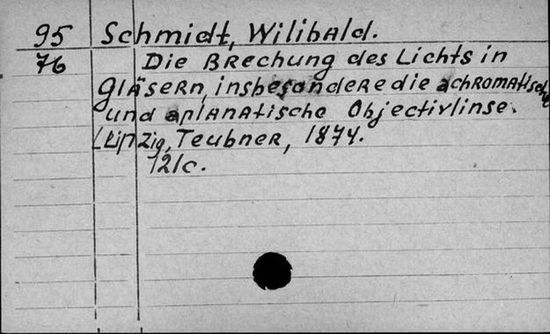 95 Schmidt, Wilibald.
76 Die Brechung des Lichts in
Gläsern, insbesondere die achromatische
und aplanatische Objectivlinse.
Leipzig, Teubner, 1874.
121c.